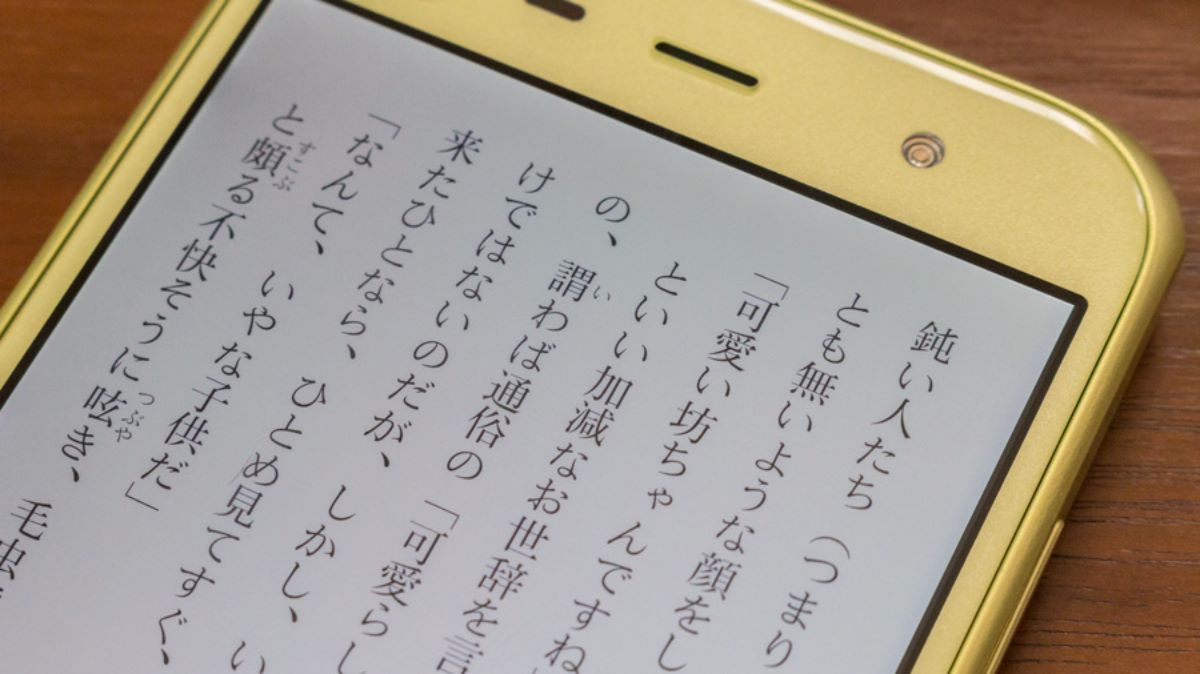 鈍い人たち（つまり
とも無いような顔をし
「可愛い坊ちゃんですね
といい加減なお世辞を言
の、謂わば通俗の「可愛らし
けではないのだが、しかし、い
来たひとなら、ひとめ見てすぐ、
「なんて、いやな子供だ」
と頗る不快そうに呟き、毛虫